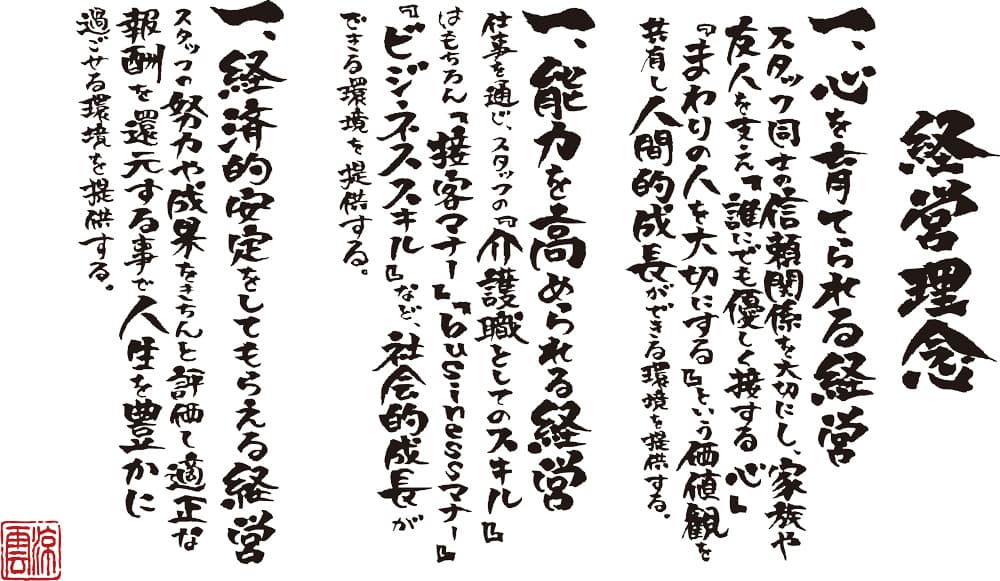 経営理念
一、心を育てられる経営
スタッフ同士の信頼関係を大切にし、家族や
友人を支え『誰にでも優しく接する心』
『まわりの人を大切にする』という価値観を
共有し人間的成長ができる環境を提供する。
一、能力を高められる経営
仕事を通じ、スタッフの『介護職としてのスキル』
はもちろん『接客マナー』『businessマナー』
『ビジネススキル』など、社会的成長が
できる環境を提供する。
一、経済的安定をしてもらえる経営
スタッフの努力や成果をきちんと評価て適正な
報酬を還元する事で人生を豊かに
過ごせる環境を提供する。
涼雲